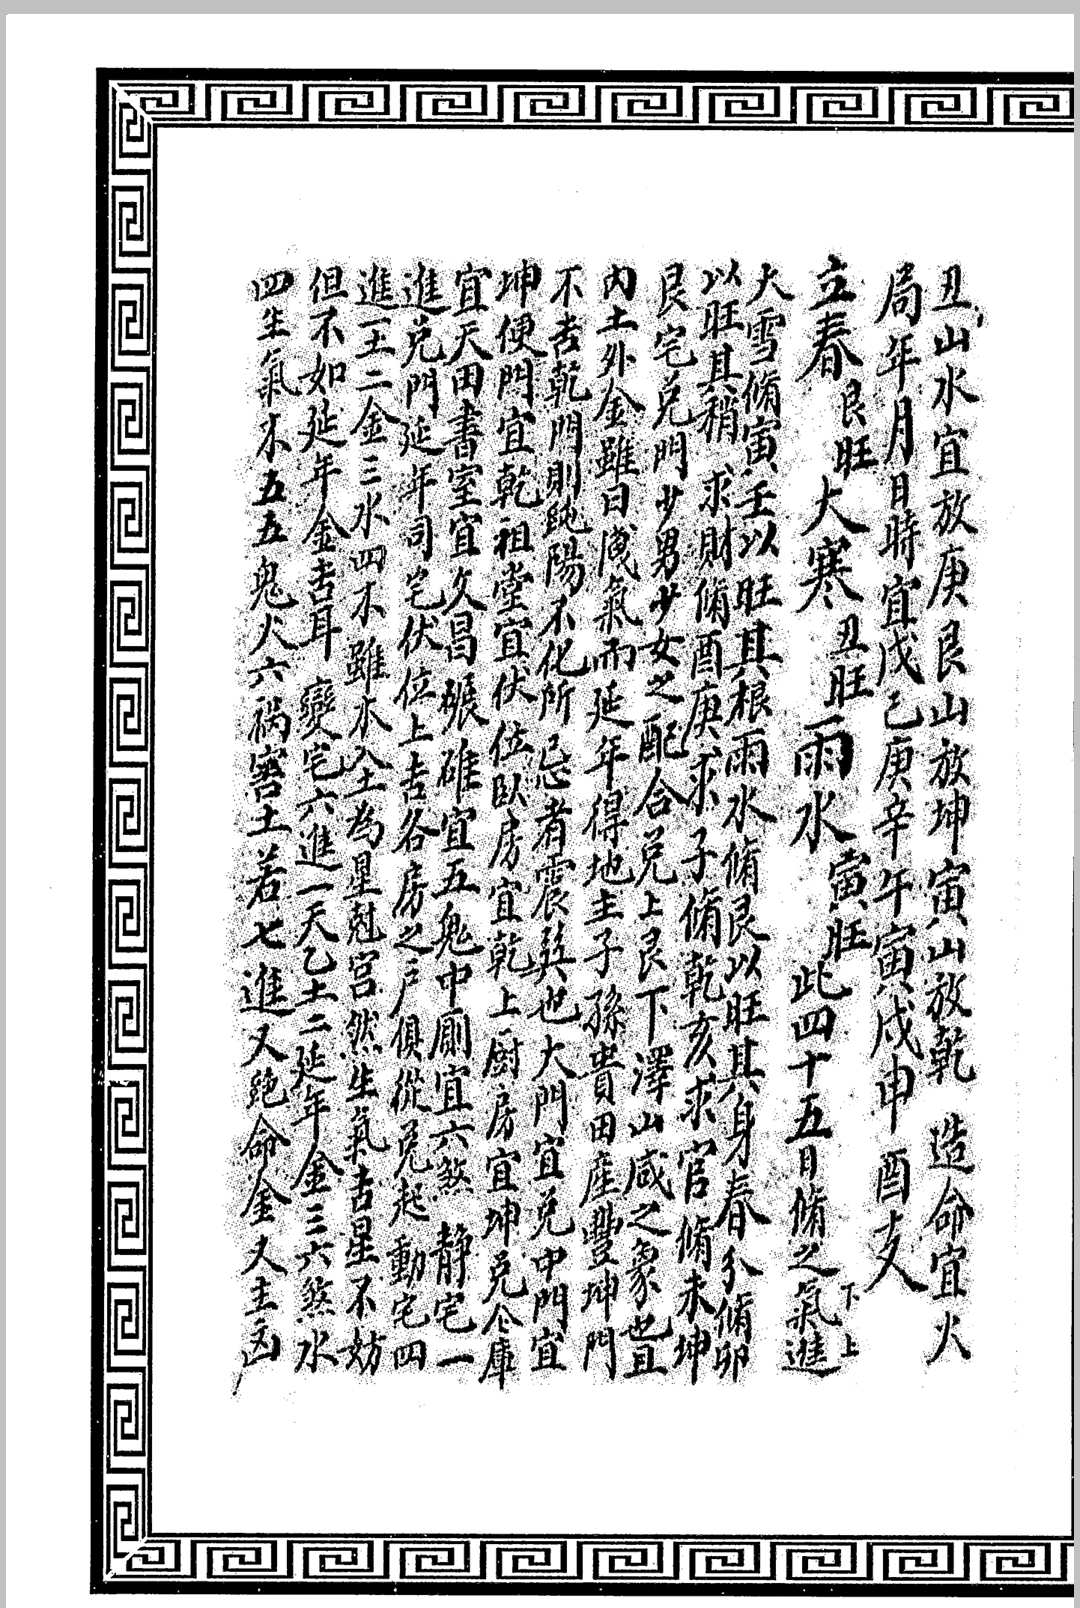 丑山水宜放庚艮山放坤寅山放乾 造命宜火
局年月日時宜戊己庚辛午寅戌申酉支
立春艮旺大寒丑旺雨水寅旺此四十五日脩之氣進下上
大雪脩寅壬以旺其根雨水脩艮以旺其身春分脩卯
以旺其稍 求財脩酉庚求子脩乾亥求官脩未坤
艮宅兌門少男少女之配合兌上艮下澤山咸之象也且
內土外金雖曰洩氣而延年得地主子孫貴田產豐坤門
不吉乾門則純陽不化所忌者震巽也大門宜兌中門宜
坤便門宜乾祖堂宜伏位臥房宜乾上厨房宜坤兌仝庫
宜天田書室宜久昌碾碓宜五鬼中厠宜六煞 静宅一
進兌門延年司宅伏位上吉各房之戶俱從兌起 動宅四
進一土二金三水四木雖水入土為星尅宮然生氣吉星不妨
但不如延年金吉耳 變宅六進一天乙土二延年金三六煞水
四生氣木五五鬼火六禍害土若七進又絶命金又主凶